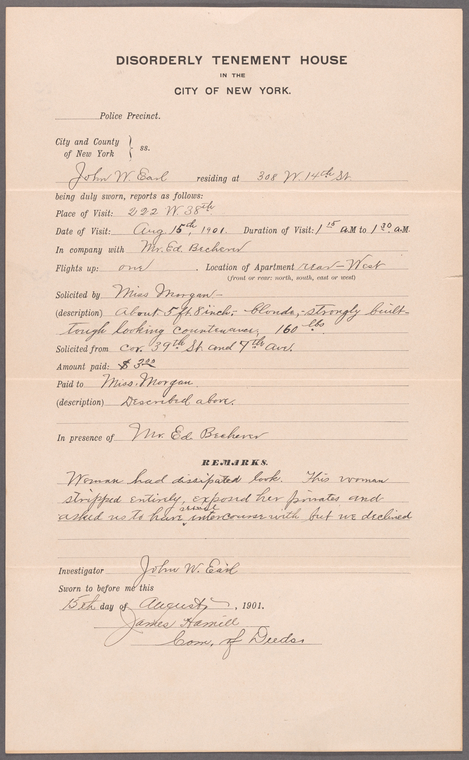 DISORDERLY TENEMENT HOUSE
IN THE
CITY OF NEW YORK.
Police Precinct.
City and County
of New York } ss.
John W. Earl residing at 308 W. 14th St
being duly sworn, reports as follows:
Place of Visit: 222 W. 38th
Date of Visit: Aug 15th, 1901. Duration of Visit: 1 15 A.M to 1 30 A.M.
In company with Mr. Ed. Becherer
Flights up: one . Location of Apartment rear - West
(front or rear: north, south, east or west)
Solicited by Miss Morgan -
(description) About 5 ft. 8 inch; - blonde, - strongly built -
tough looking countenance, 160 lbs.
Solicited from cor. 39th St. and 7th Ave.
Amount paid: $ 3.00
Paid to Miss. Morgan.
(description) Described above.
In presence of Mr. Ed Becherer
REMARKS.
Woman had dissipated look. This woman
stripped entirely, exposed her privates and
asked us to have sexual intercourse with but we declined
Investigator John W. Earl
Sworn to before me this
15th day of August , 1901.
James Hamill
Com. of Deeds.